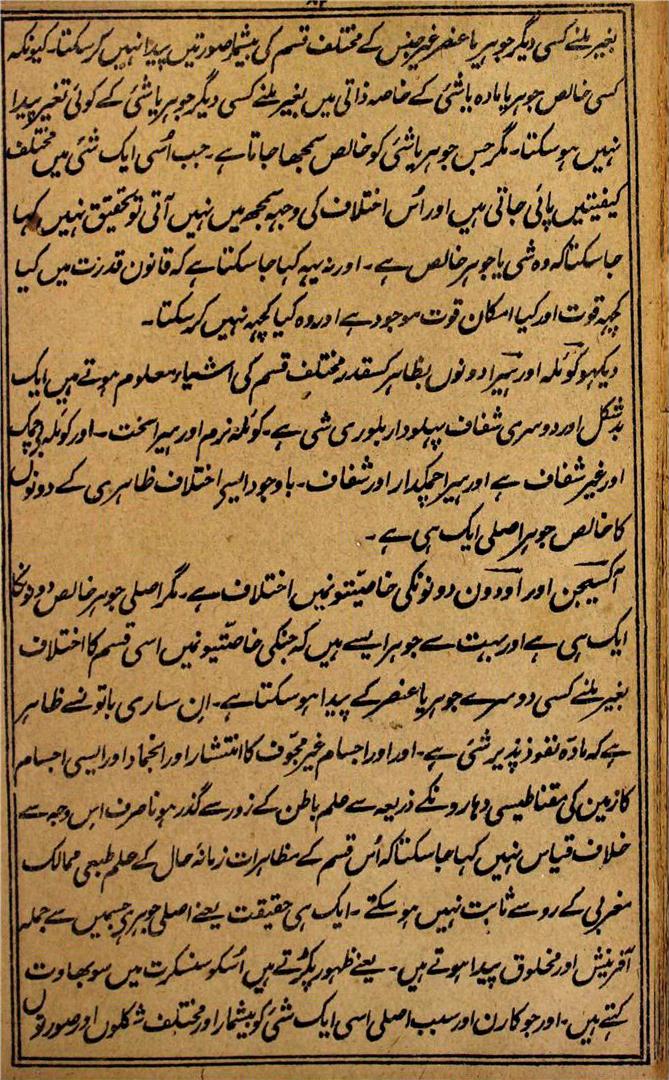 ۸۲
بغیر ملنے کسی دیگر جوہر یا عنصر غیر جنس کے مختلف قسم کی بیشمار صورتیں پیدا نہیں کر سکتا۔ کیونکہ
کسی خالص جوہر یا مادہ یا شئی کے خاصہ ذاتی میں بغیر ملنے کسی دیگر جوہر یا شئی کے کوئی تغیر پیدا
نہیں ہو سکتا۔ مگر جس جوہر یا شئی کو خالص سمجھا جاتا ہے۔ جب اُسی ایک شئی میں مختلف
کیفیتیں پائی جاتی ہیں اور اُس اختلاف کی وجہ سمجھ میں نہیں آتی تو بتحقیق نہیں کہا
جا سکتا کہ وہ شی یا جوہر خالص ہے۔ اور نہ یہہ کہا جا سکتا ہے کہ قانون قدرت میں کیا
کچہہ قوت اور کیا امکان قوت موجود ہے اور وہ کیا کچہہ نہیں کر سکتا۔
دیکہو کوئلہ اور ہیرا دونوں بظاہر کسقدر مختلف قسم کی اشیاء معلوم ہوتے ہیں ایک
بد شکل اور دوسری شفاف پہلودار بلوری شی ہے۔ کوئلہ نرم اور ہیرا سخت۔ اور کوئلہ بے چمک
اور غیر شفاف ہے اور ہیرا چمکدار اور شفاف۔ باوجود ایسے اختلاف ظاہری کے دونوں
کا خالص جوہر اصلی ایک ہی ہے۔
آکسیجن اور اوزون دونونکی خاصیّتونمیں اختلاف ہے۔ مگر اصلی جوہر خالص دونونکا
ایک ہی ہے اور بہت سے جوہر ایسے ہیں کہ جنکی خاصیّتونمیں اسی قسم کا اختلاف
بغیر ملنے کسی دوسرے جوہر یا عنصر کے پیدا ہو سکتا ہے۔ اِن ساری باتونسے ظاہر
ہے کہ مادّہ نفوذ پذیر شئی ہے۔ اور اور اجسام غیر مجوّف کا انتشار اور انجماد اور ایسی اجسام
کا زمین کی مقناطیسی دہارونکے ذریعہ سے علم باطن کے زور سے گذر ہونا صرف اِس وجہ سے
خلاف قیاس نہیں کہا جا سکتا کہ اُس قسم کے مظاہرات زمانۂ حال کے علم طبعی ممالک
مغربی کے رو سے ثابت نہیں ہو سکتے۔ ایک ہی حقیقت یعنے اصلی جوہری جسمیں سے جملہ
آفرینش اور مخلوق پیدا ہوتے ہیں۔ یعنے ظہور پکڑتے ہیں اُسکو سنسکرت میں سوبھاوت
کہتے ہیں۔ اور جو کارن اور سبب اصلی اسی ایک شئی کو بیشمار اور مختلف شکلوں اور صورتوں